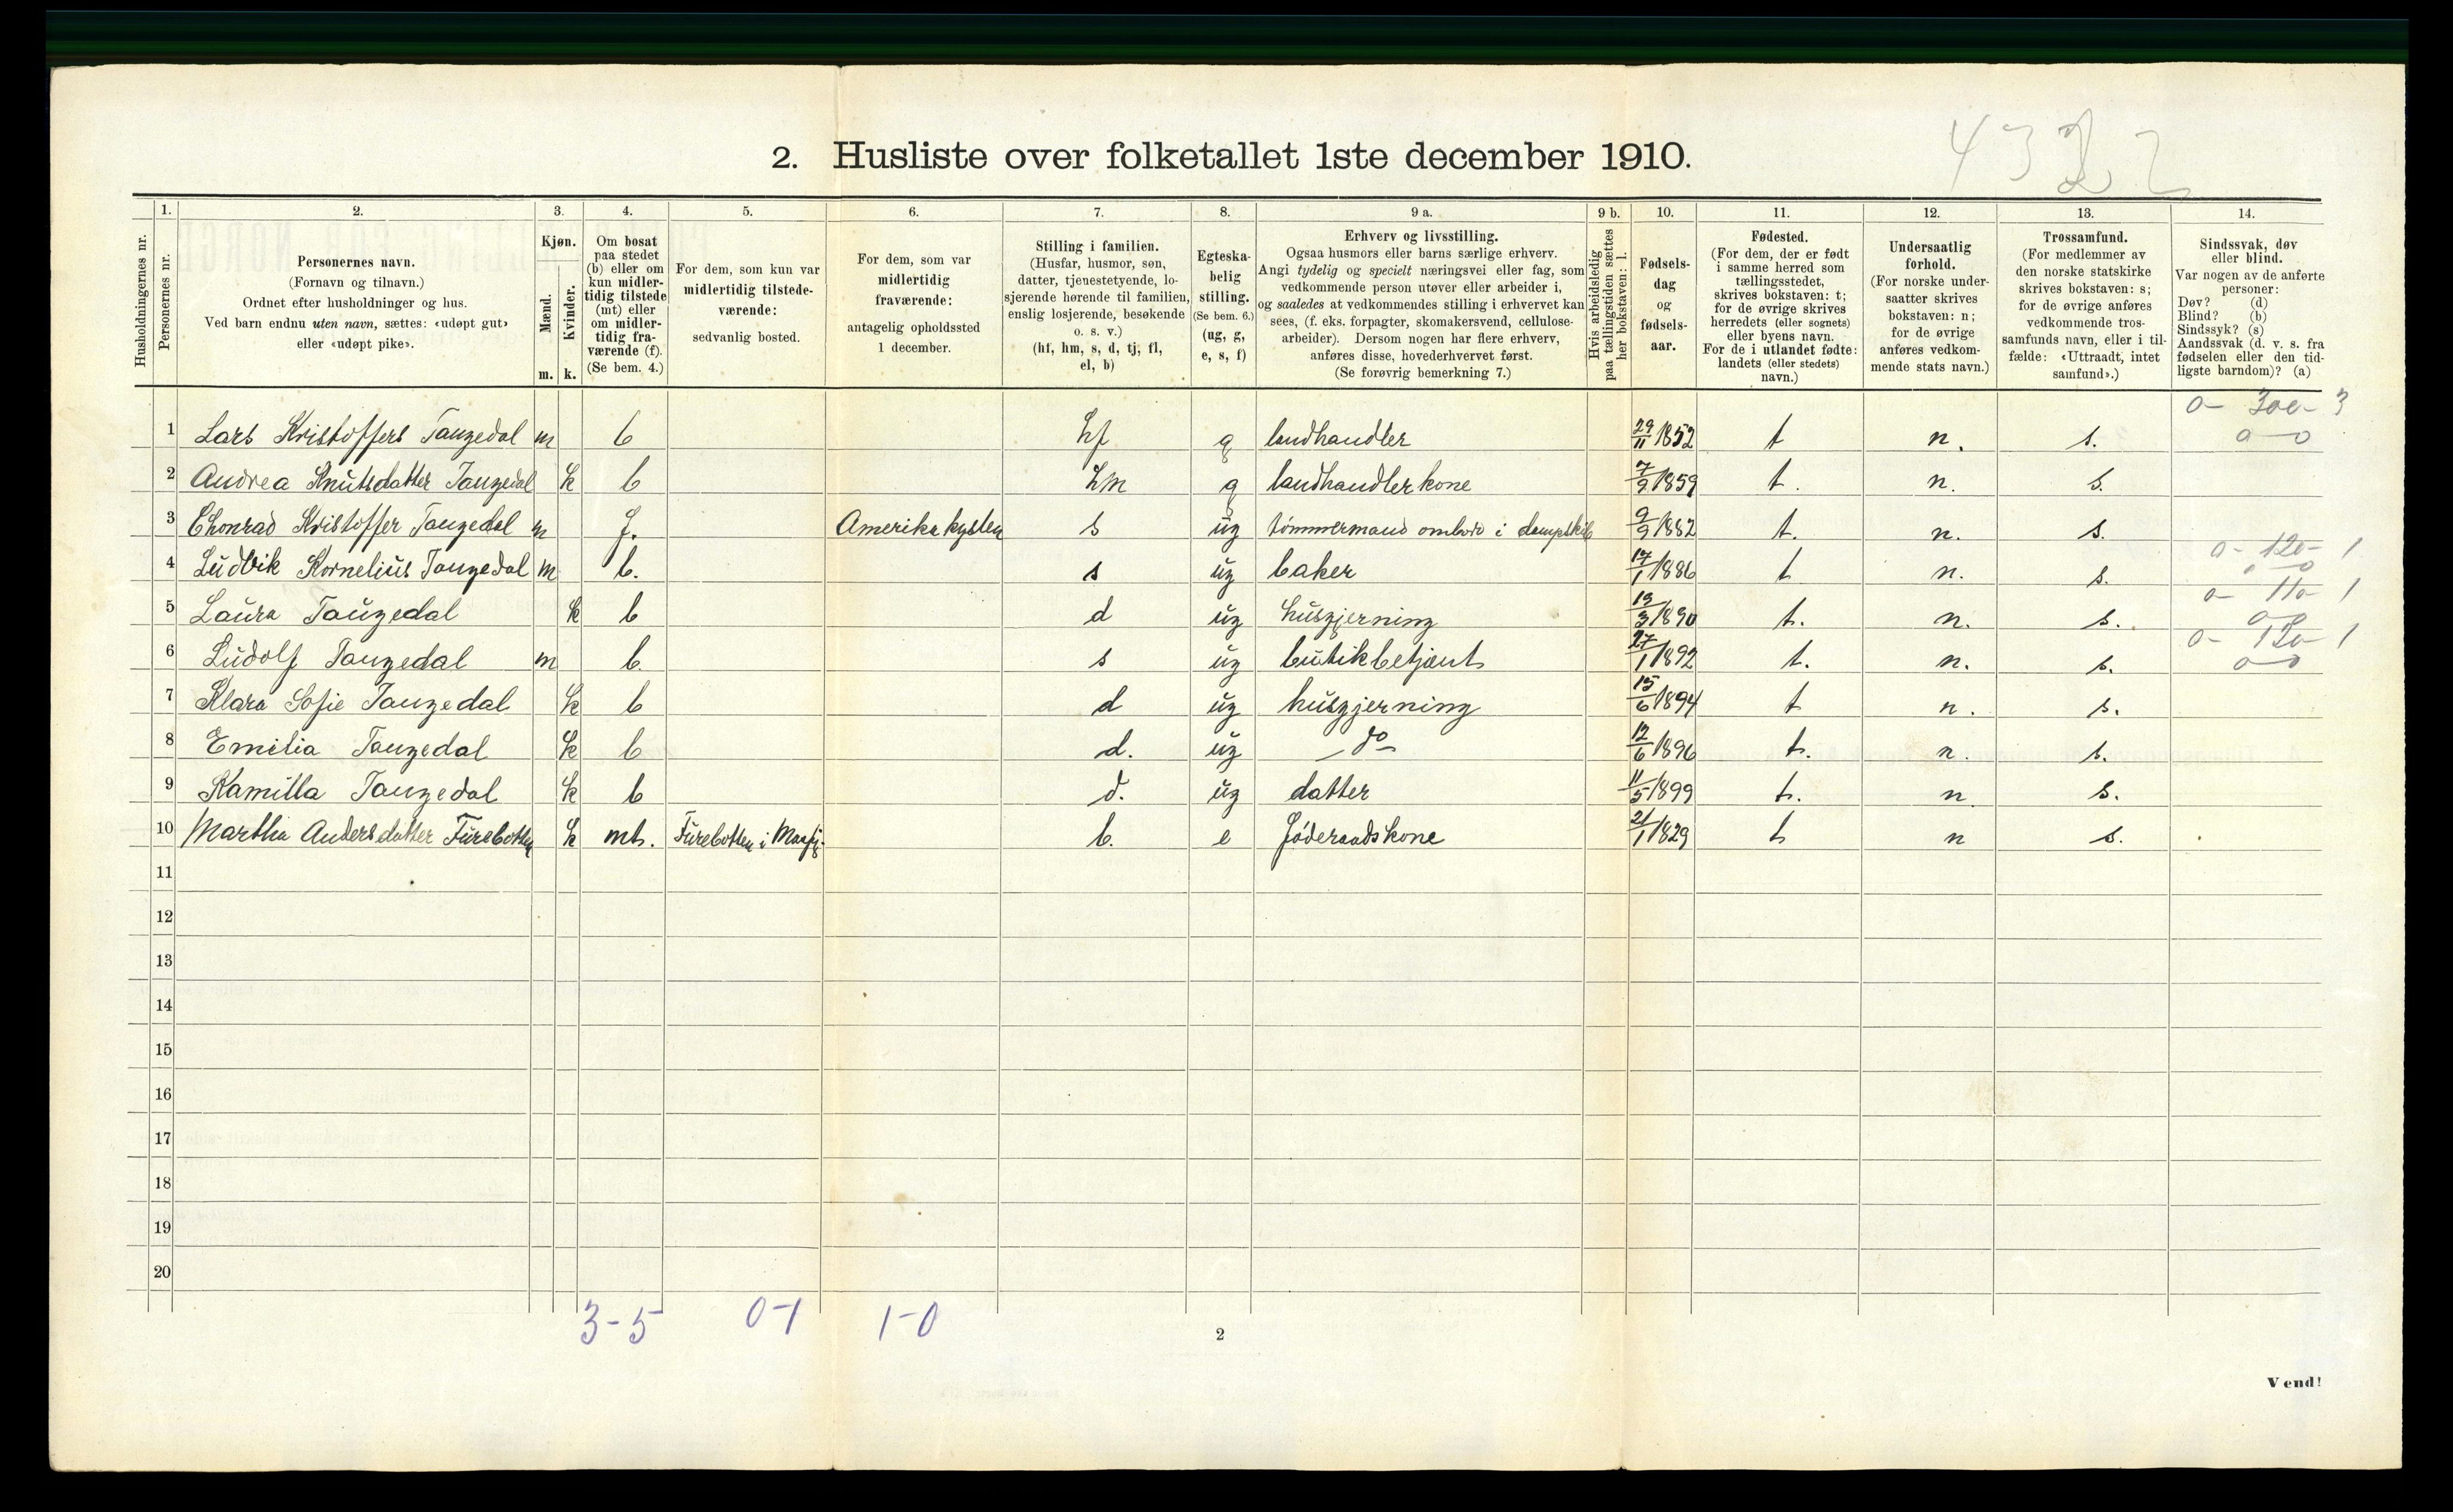 4322
2. Husliste over folketallet 1ste december 1910.
Husholdningernes nr.
1. Personernes nr.
2. Personernes navn.
(Fornavn og tilnavn.)
Ordnet efter husholdninger og hus.
Ved barn endnu uten navn, sættes: «udøpt gut»
eller «udøpt pike».
3. Kjøn.
Mænd. Kvinder.
m. k.
4. Om bosat
paa stedet
(b) eller om
kun midler-
tidig tilstede
(mt) eller
om midler-
tidig fra-
værende (f).
(Se bem. 4.)
5. For dem, som kun var
midlertidig tilstede-
værende:
sedvanlig bosted.
6. For dem, som var
midlertidig
fraværende:
antagelig opholdssted
1 december.
7. Stilling i familien.
(Husfar, husmor, søn,
datter, tjenestetyende, lo-
sjerende hørende til familien,
enslig losjerende, besøkende
o. s. v.)
(hf, hm, s, d, tj, fl,
el, b)
8. Egteska-
belig
stilling.
(Se bem. 6.)
(ug, g,
e, s, f)
9 a. Erhverv og livsstilling.
Ogsaa husmors eller barns særlige erhverv.
Angi tydelig og specielt næringsvei eller fag, som
vedkommende person utøver eller arbeider i,
og saaledes at vedkommendes stilling i erhvervet kan
sees, (f. eks. forpagter, skomakersvend, cellulose-
arbeider). Dersom nogen har flere erhverv,
anføres disse, hovederhvervet først.
(Se forøvrig bemerkning 7.)
9 b. Hvis arbeidsledig
paa tællingstiden sættes
her bokstaven: l.
10. Fødsels-
dag
og
fødsels-
aar.
11. Fødested.
(For dem, der er født
i samme herred som
tællingsstedet,
skrives bokstaven: t;
for de øvrige skrives
herredets (eller sognets)
eller byens navn.
For de i utlandet fødte:
landets (eller stedets)
navn.)
12. Undersaatlig
forhold.
(For norske under-
saatter skrives
bokstaven: n;
for de øvrige
anføres vedkom-
mende stats navn.)
13. Trossamfund.
(For medlemmer av
den norske statskirke
skrives bokstaven: s;
for de øvrige anføres
vedkommende tros-
samfunds navn, eller i til-
fælde: «Uttraadt, intet
samfund».)
14. Sindssvak, døv
eller blind.
Var nogen av de anførte
personer:
Døv? (d)
Blind? (b)
Sindssyk? (s)
Aandssvak (d. v. s. fra
fødselen eller den tid-
ligste barndom)? (a)
1 Lars Kristoffers Tangedal m b hf g landhandler 29/11 1852 t n. s. 0-300-3 0-0
2 Andrea Knutsdatter Tangedal k b hm g landhandlerkone 7/9 1859 t. n. s.
3 Chonrad Kristoffer Tangedal m f. Amerikakysten s ug tømmermand ombord i dampskib 9/9 1882 t. n. s.
4 Ludvik Kornelius Tangedal m b. s ug baker 17/1 1886 t n. s. 0-120-1
5 Laura Tangedal k b d ug husgjerning 19/3 1890 t. n. s. 0-110-1
6 Ludolf Tangedal m b. s ug butikbetjent 27/1 1892 t. n. s. 0-120-1 0-0
7 Klara Sofie Tangedal k b d ug husgjerning 15/6 1894 t n. s.
8 Emilia Tangedal k b d. ug do 12/6 1896 t. n. s.
9 Kamilla Tangedal k b d. ug datter 11/5 1899 t. n s.
10 Martha Andersdatter Furebotten k mt. Furebotten i b. e føderaadskone 21/1 1829 t n s.
11
12
13
14
15
16
17
18
19
20
3-5 0-1 1-0
2
Vend!